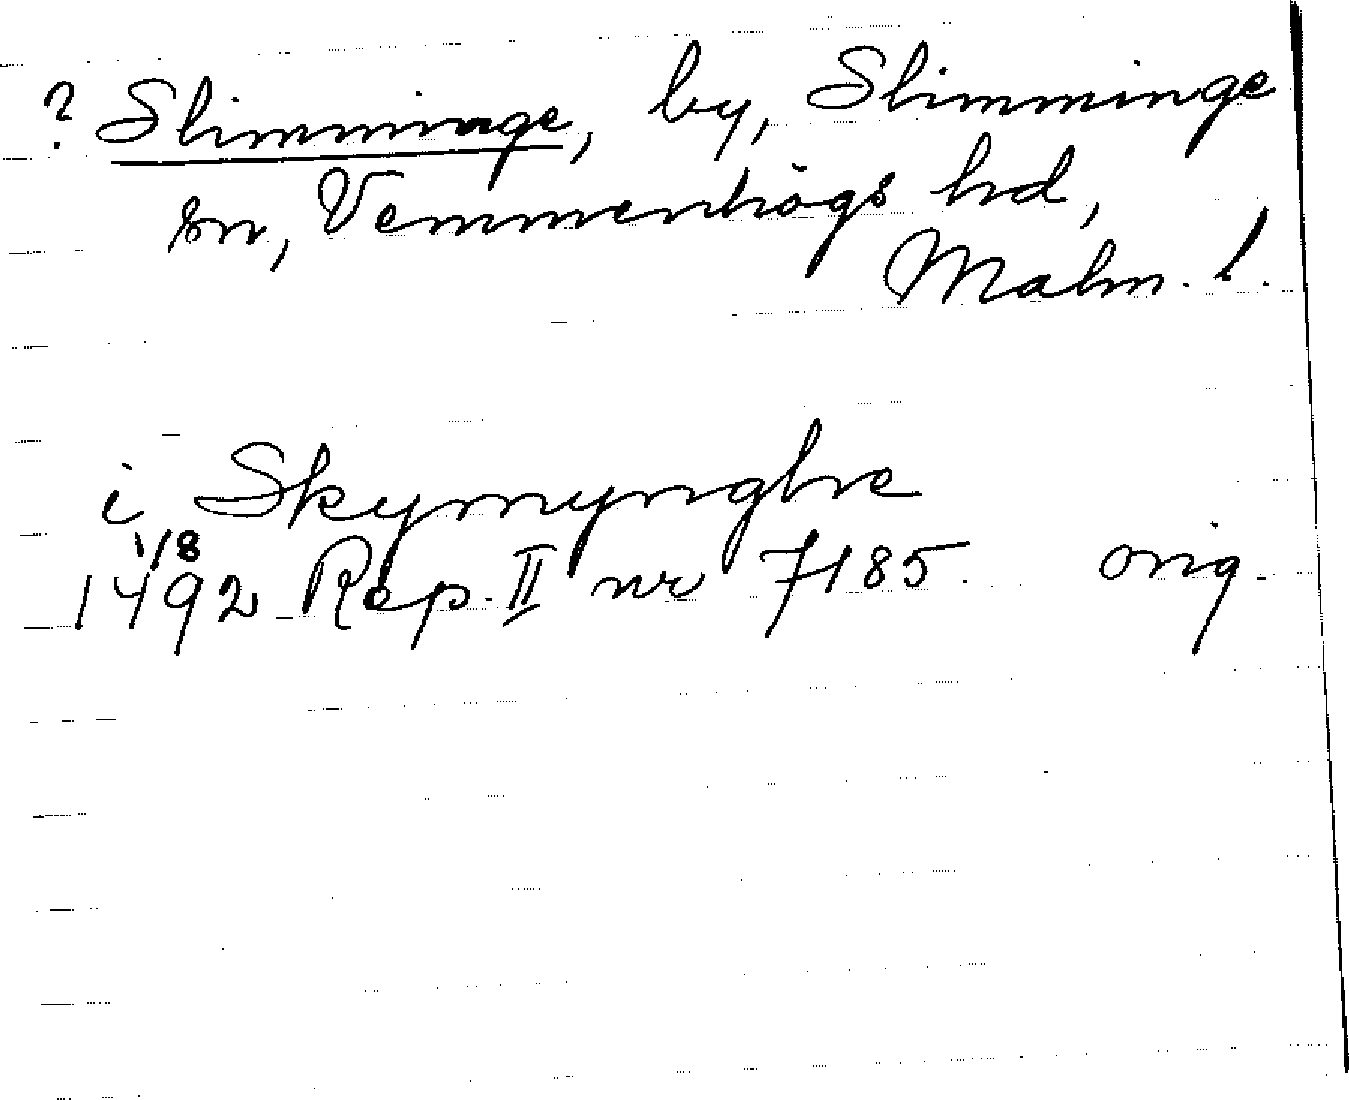 ? Slimminge, by, Slimminge
sn, Vemmenhögs hd,
Malm. l.
i Skymynghe
1/8
1492 Rep. II nr 7185. orig.